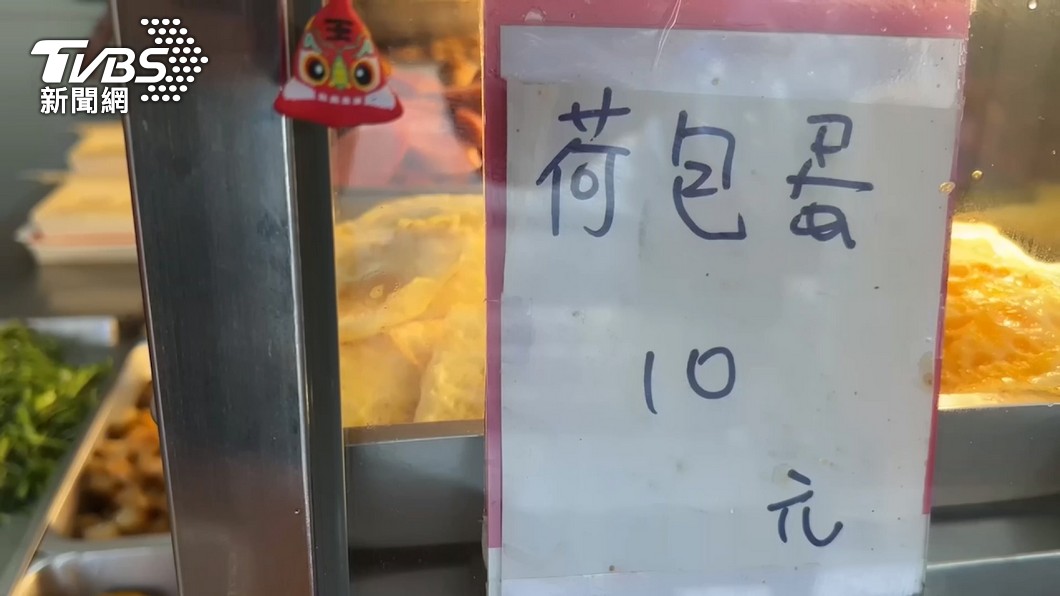 TVBS
新聞網
王
荷包蛋
10
元